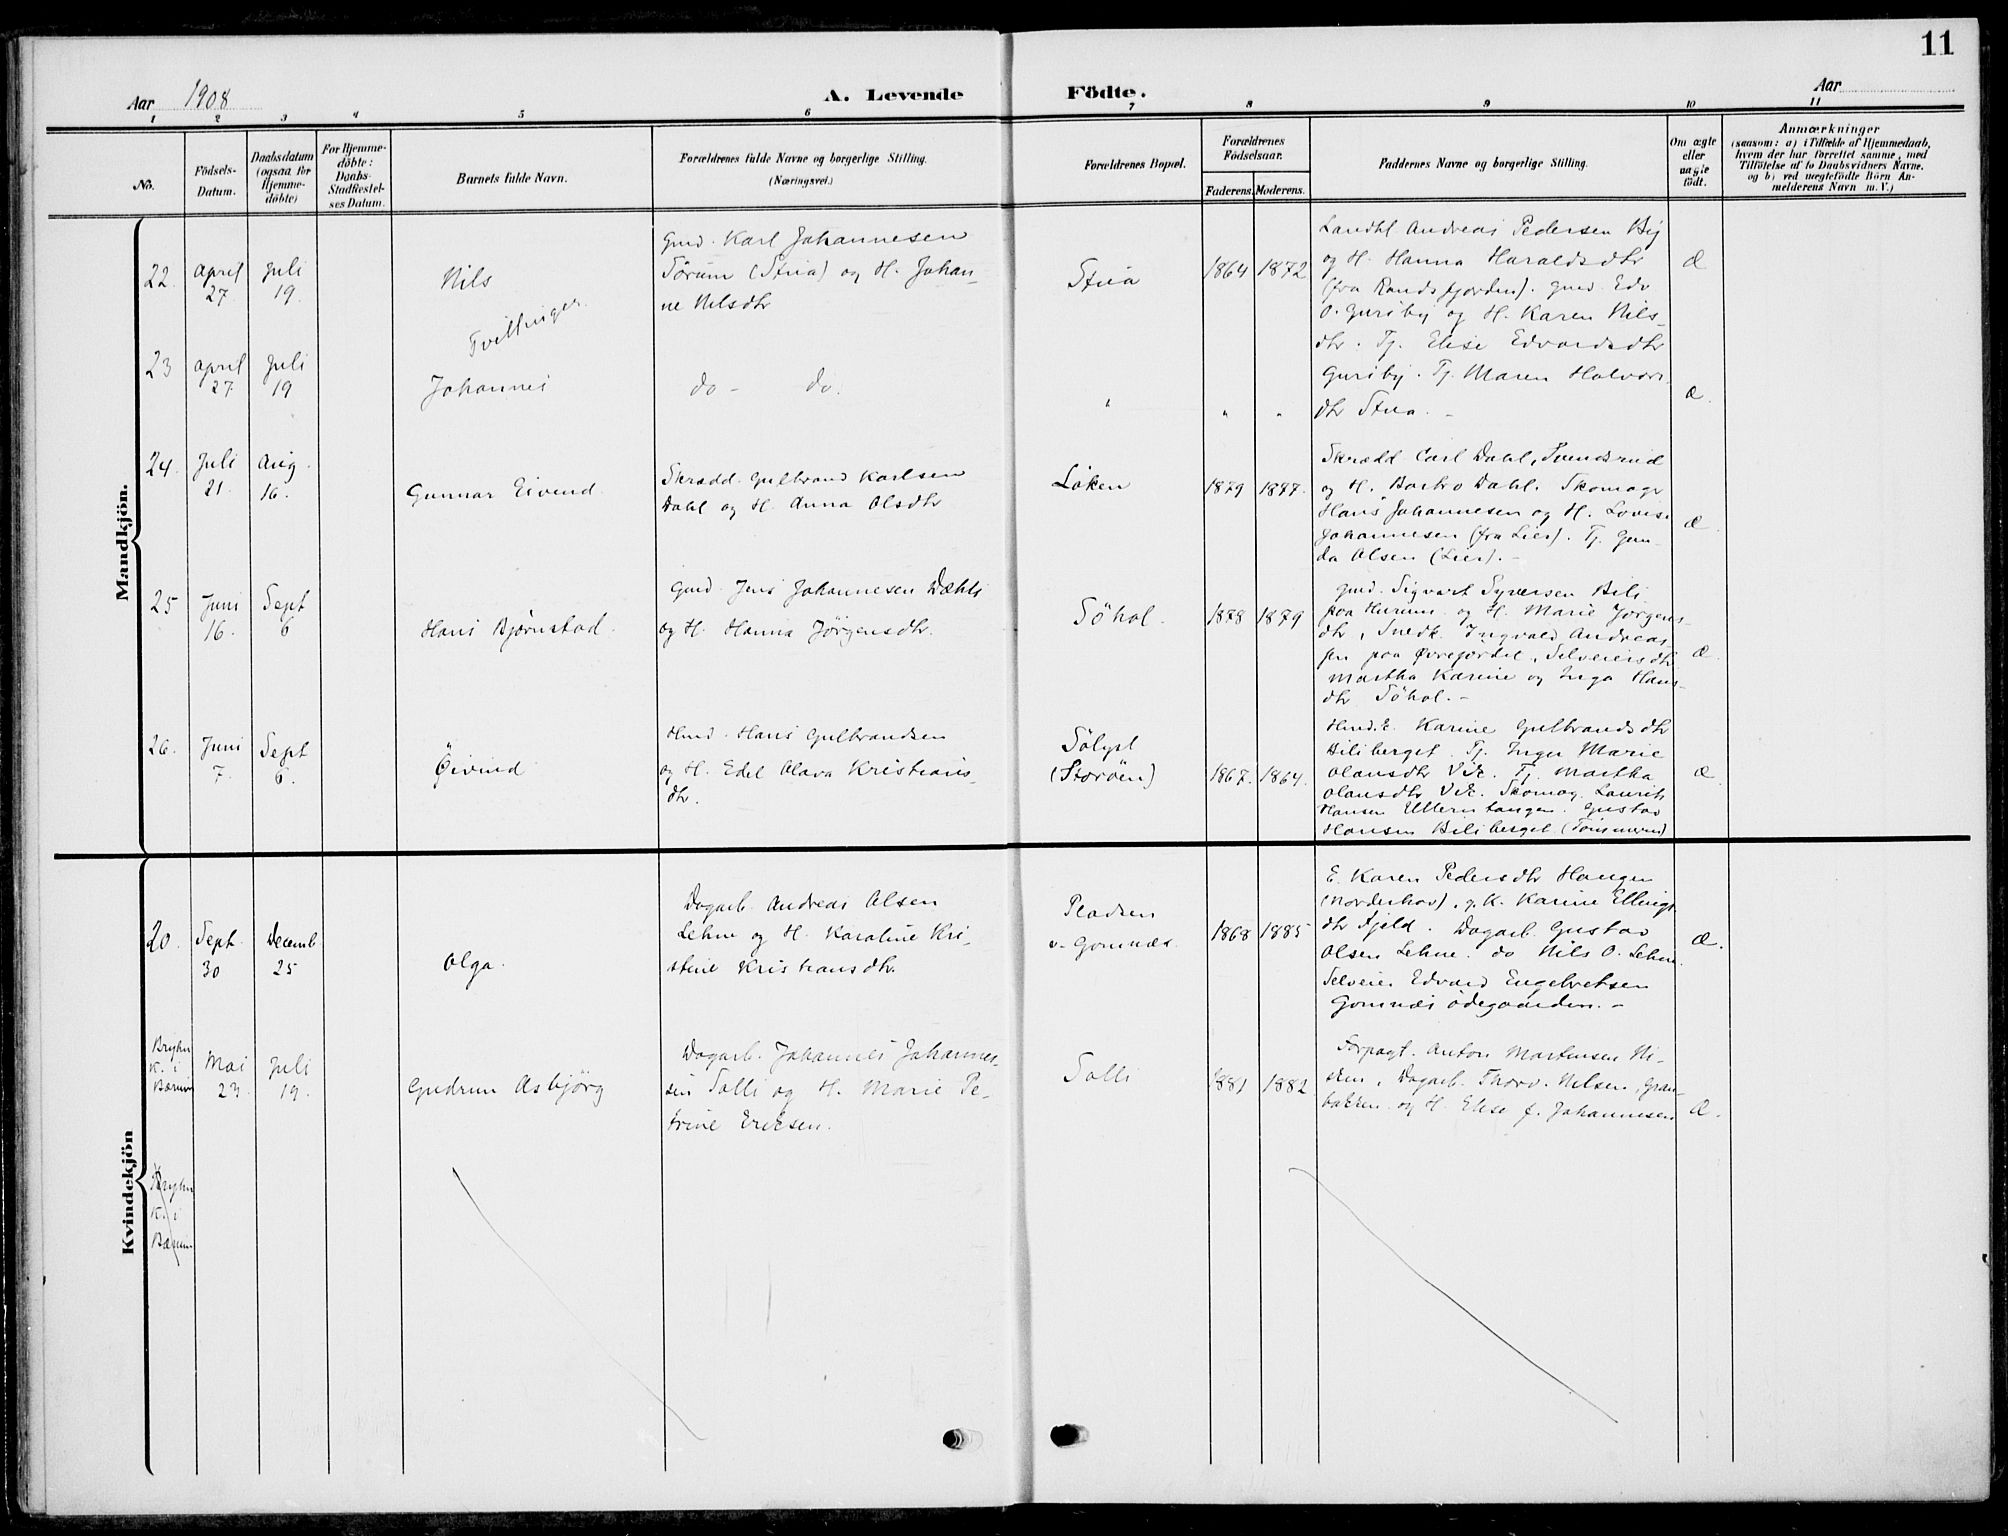 11
Aar 1908
A. Levende Födte.
Aar
1 2 3 4 5 6 7 8 9 10 11
No.
Födsels-
Datum.
Daabsdatum
(ogsaa for
Hjemme-
döbte)
For Hjemme-
döbte:
Daabs-
Stadfæstel-
ses Datum.
Barnets fulde Navn.
Forældrenes fulde Navne og borgerlige Stilling.
(Næringsvei.)
Forældrenes Bopæl.
Forældrenes
Födselsaar.
Faderens. Moderens.
Faddernes Navne og borgerlige Stilling.
Om ægte
eller
uægte
födt.
Anmærkninger
(saasom: a) i Tilfælde af Hjemmedaab,
hvem der har forrettet samme, med
Tilföielse af to Daabsvidners Navne,
og b) ved uægtefödte Börn An-
melderens Navn m. V.)
Mandkjön.
22. April 27 Juli 19.
Nils
Gmd. Karl Johannesen
Sørum (Stua) og H. Johan-
ne Nilsdtr
Stua
1864 1872
Landhl Andreas Pedersen Big
og H. Hanna Haraldsdtr
(fra Randsfjorden). Gmd. Edv
O. Gursby og H. Karen Nils-
dtr. Tj. Elise Edvardsdtr
Gursby. Tj. Maren Halvors
dtr Stua. -
Æ
Tvillinger
23 April 27. Juli 19
Johannes
do - do.
" " "
Æ.
24. Juli 21. Aug. 16.
Gunnar Eivend.
Skrædd. Gulbrand Karlsen
Dahl og H. Anna Olsdtr
Løken
1879 1877.
Skrædd Carl Dahl, Svendsrud
og H. Barbro Dahl. Skomagr
Hans Johannesen og H. Lovise
Johannesen (fra Lier). Tj. Gun-
da Olsen (Lier). -
Æ.
25 Juni 16. Sept 6
Hans Bjørnstad.
Gmd. Jens Johannesen Dæhli
og H. Hanna Jørgensdtr.
Søhol.
1878 1879
Gmd. Sigvart Syversen Bili
paa Hurum og H. Marie Jørgens-
dtr, Snedk. Ingvald Andreas-
sen paa Øvregjerdet, Selveiersdtr
Martha Karine og Inga Hans-
dtr Søhol. -
Æ.
26. Juni 7. Sept 6.
Öivind
Hmd. Hans Gulbrandsen
og H. Edel Olava Kristians-
dtr.
Sølyst
(Storøen)
1867. 1864.
Hmd.E. Karine Gulbrandsdtr
Biliberget. Tj. Inga Marie
Olausdtr Vik. Tj. Martha
Olausdtr Vik. Skomag. Laurits
Hansen Ellernstangen. Gustav
Hansen Biliberget (Tømmerm)
Æ.
Kvindekjön
20. Sept. 30 Decemb. 25
Olga.
Dagarb. Andreas Olsen
Lehne og H. Karoline Kri-
stine Kristiansdtr.
Pladsen
v. Gomnæs.
1868 1885
E. Karen Pedersdtr Haugen
(Norderhov), g.K. Karine Ellings
dtr Fjeld. Dagarb. Gustav
Olsen Lehne. do Nils O. Lehne.
Selveier Edvard Engebretsen
Gomnæs ödegaarden. -
Æ.
Bryhn
K. i
Bærum
Mai 23. Juli 19.
Gudrun Asbjörg
Dagarb. Johannes Johannes-
sen Solli og H. Marie Pe-
trine Eriksen.
Solli
1881 1882
Forpagt. Anton Martinsen Ni-
sken, Dagarb. Thorv. Nilsen, Gran-
bakken og H. Elise f. Johannesen
Æ.
Bryhn
K. i
Bærum